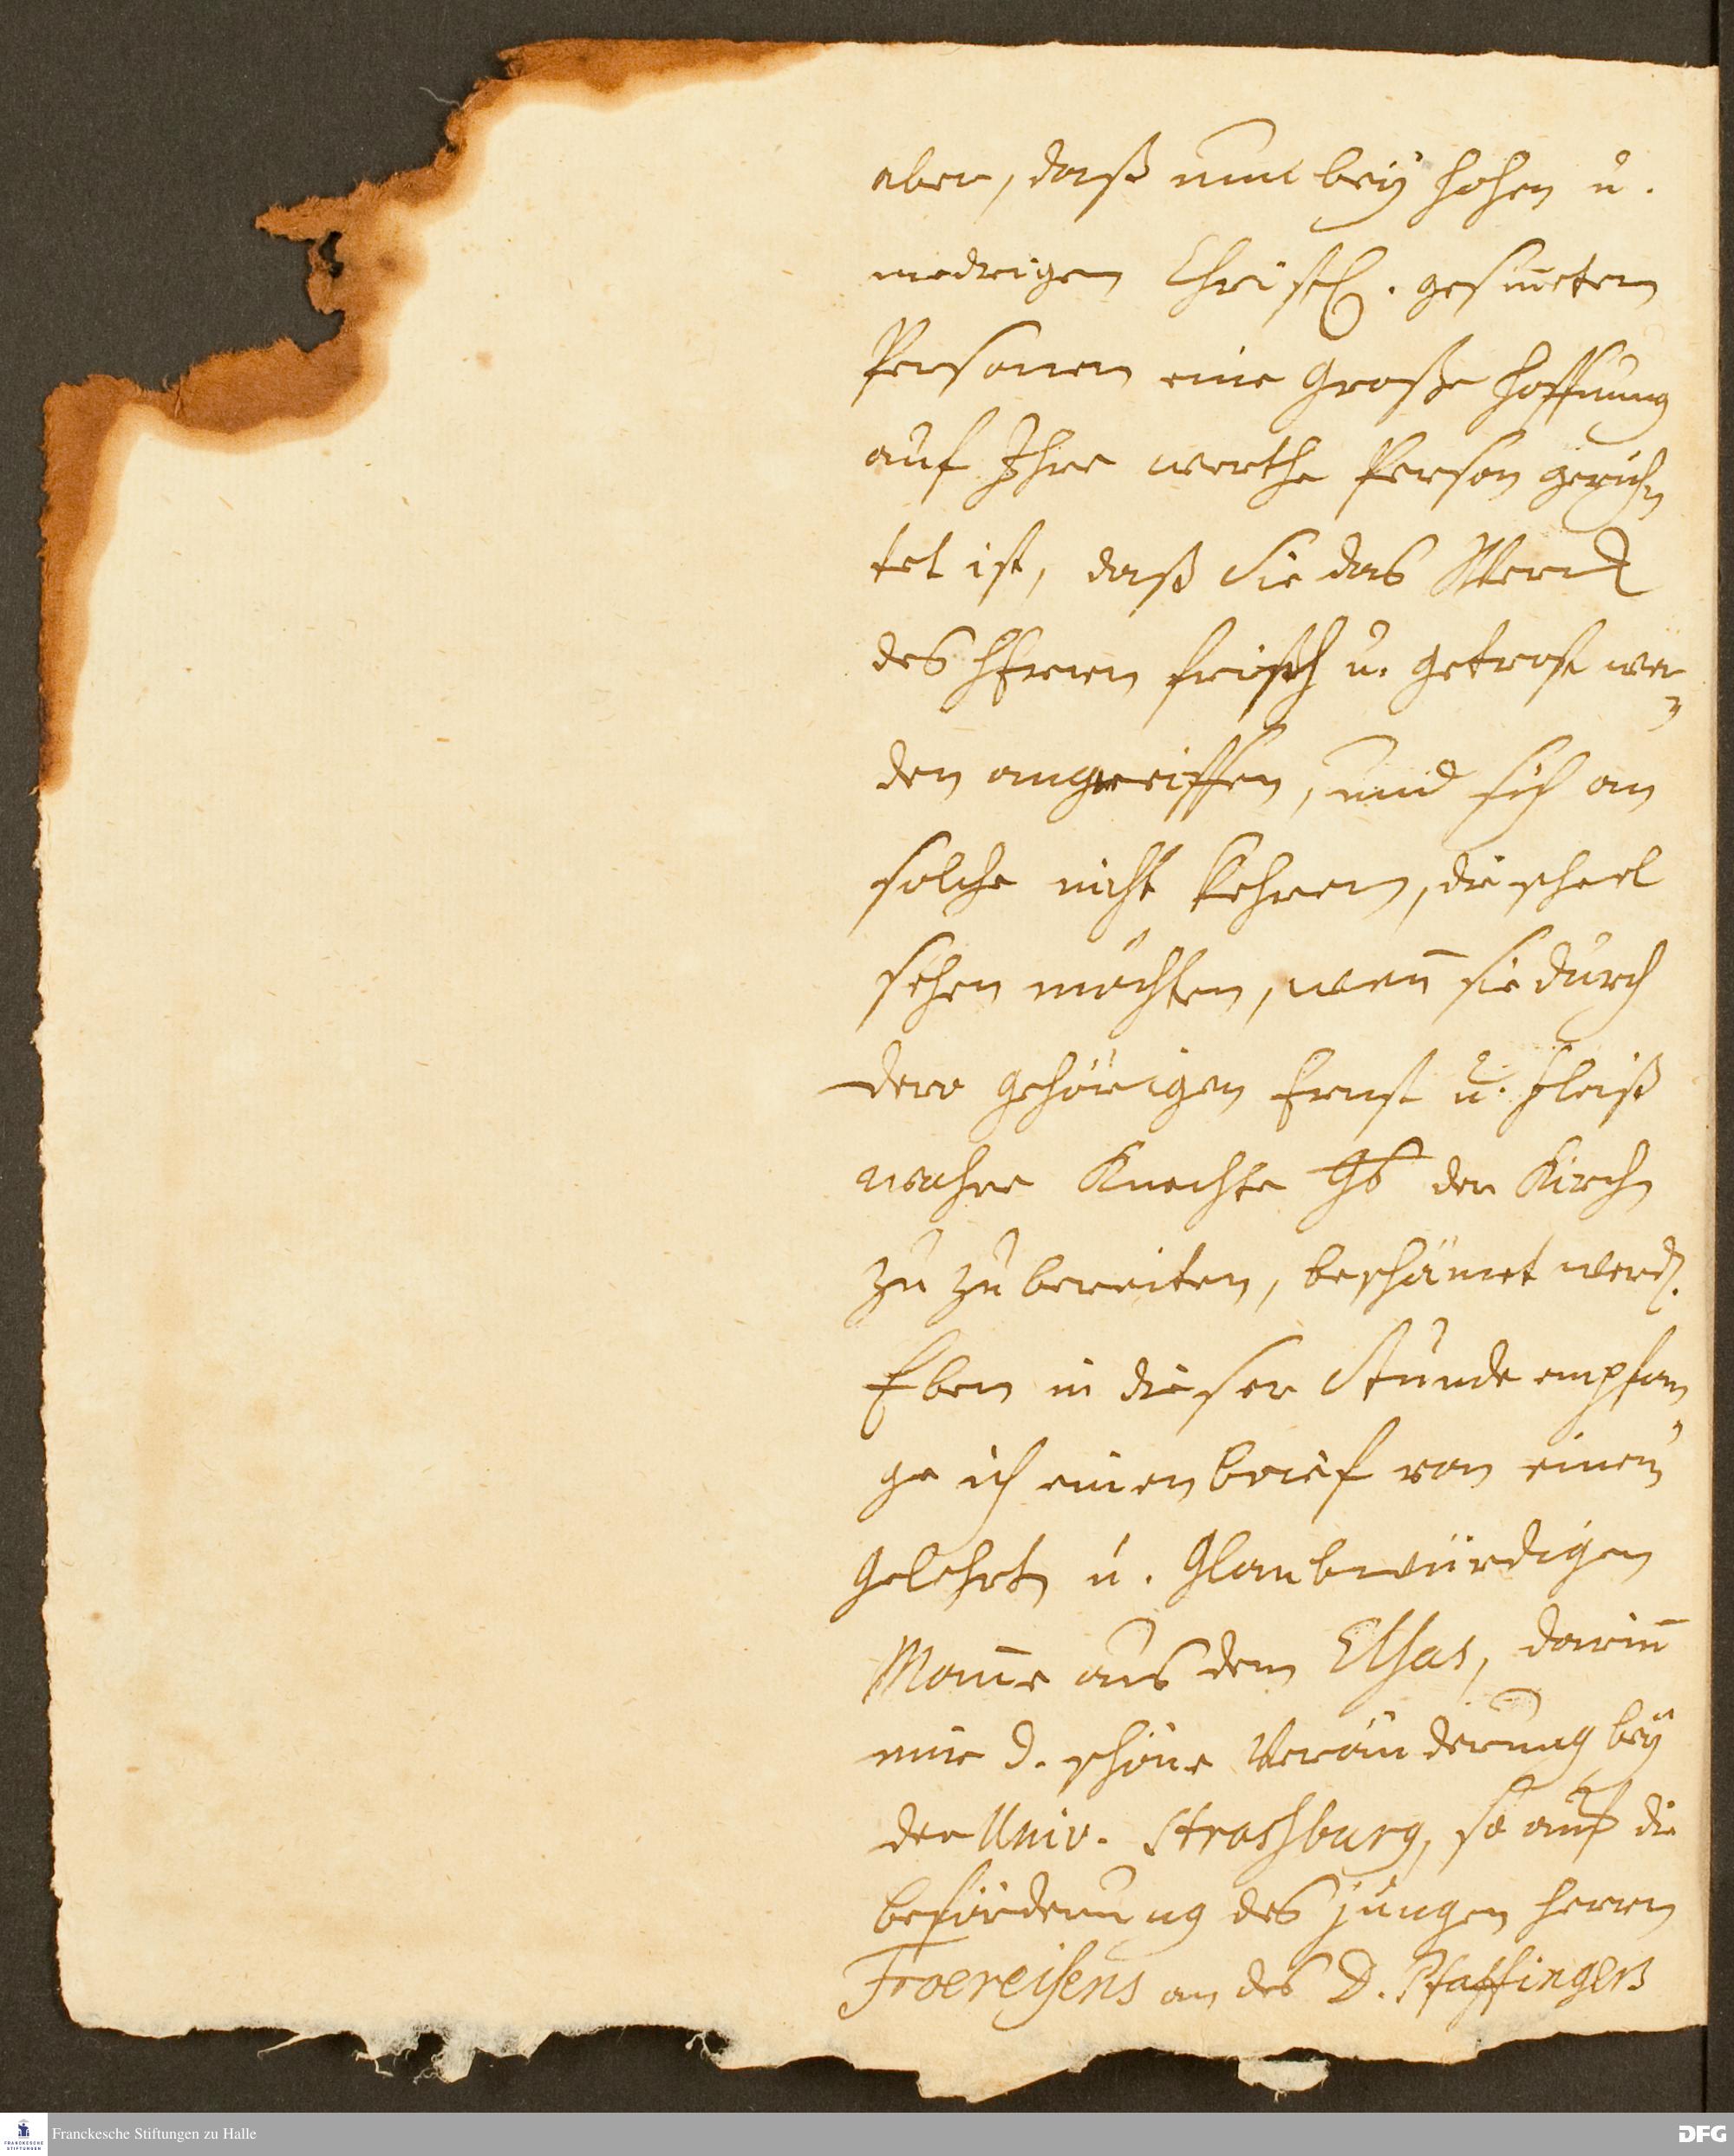 aber, daß nun bey hohen u.
niedrigen Christl. gesinneten
Personen eine große Hoffnung
auf Ihre werthe Person gerich-
tet ist, daß Sie das Werck
des HErren frisch u. getrost wer-
den angreiffen, und sich an
solche nicht kehren, die scheel
sehen möchten, wen̄ sie durch
dero gehörigen Ernst u. Fleiß
wahre Knechte GOttes der Kirchen
zu zu bereiten, beschämet werd.
Eben in dieser Stunde empfan-
ge ich einen brief von einem
Gelehrten u. Glaubwürdigen
Man̄e aus dem Elsas, darin̄
mir d. schöne Veränderung bey
der Univ. Strassburg, so auf die
beförderung des jungen Herrn
Froereisens an des D. Pfaffingers
Franckesche Stiftungen zu Halle
FRANCKESCHE
STIFTUNGEN
DFG